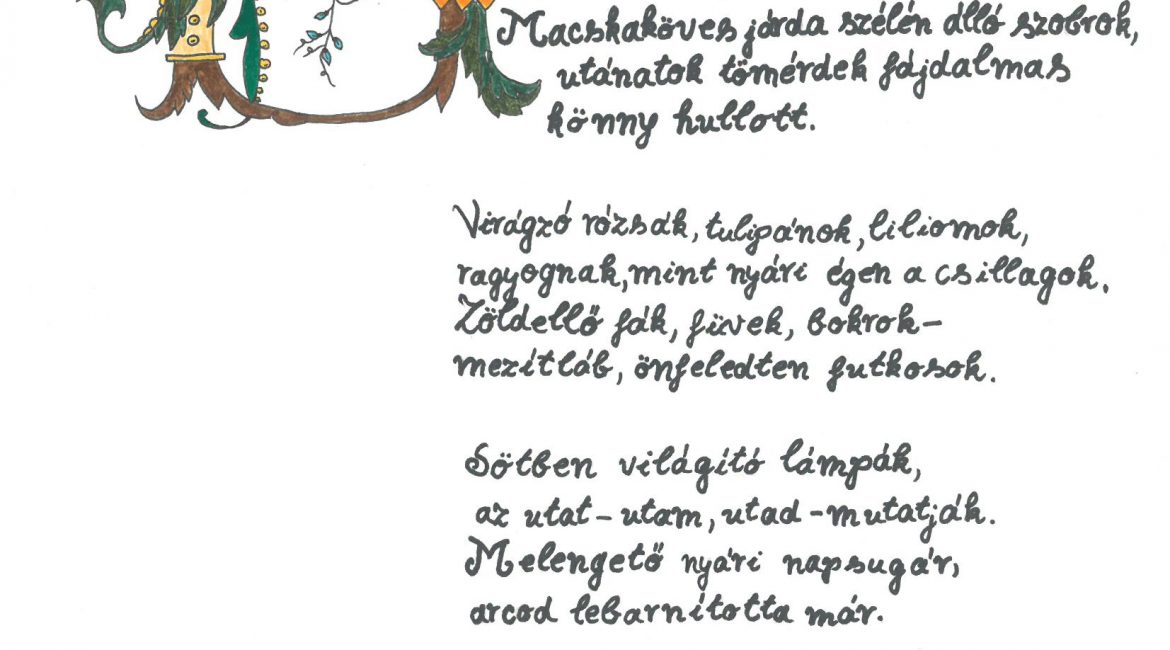 Macskaköves járda szélén álló szobrok,
utánatok tömérdek fájdalmas
könny hullott.
Virágzó rózsák, tulipánok, liliomok,
ragyognak, mint nyári égen a csillagok.
Zöldellő fák, füvek, bokrok-
mezítláb, önfeledten futkosok.
Sötben világító lámpák,
az utat-utam, utad-mutatják.
Melengető nyári napsugár,
arcod lebarnította már.